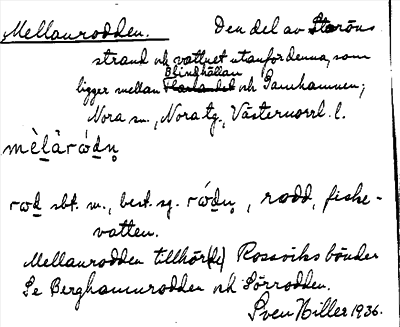 Mellanrodden. Den del av Storöns
strand och vattnet utanför denna, som
Blinghällan
ligger mellan och Samhamnen;
Nora sn., Nora tg., Västernorrl. l.
mèlaròdn̥
rod sbt. m., best. sg. ródn̥, rodd, fiske-
vatten.
Mellanrodden tillhör(de) Rossviks bönder
Se Berghamnrodden och Sörrodden.
Sven Hiller 1936.